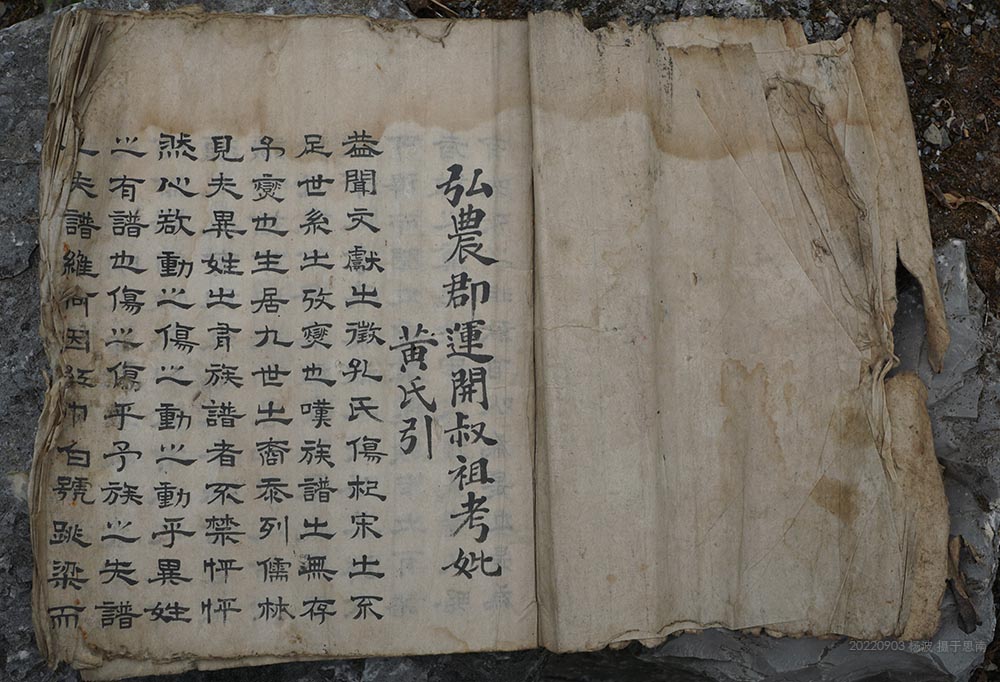 弘農郡運開叔祖考妣
黃氏引
蓋聞文獻之徵孔氏傷杞宋之不
足世系之攷燮也嘆族譜之無存
燮也生居九世之裔忝列儒林
見夫異姓之有族譜者不禁怦怦
然心欲動之傷之動之動乎異姓
之有譜也傷之傷乎予族之失譜
失譜維何因紅巾白號跳梁而
20220903 杨波 摄于思南